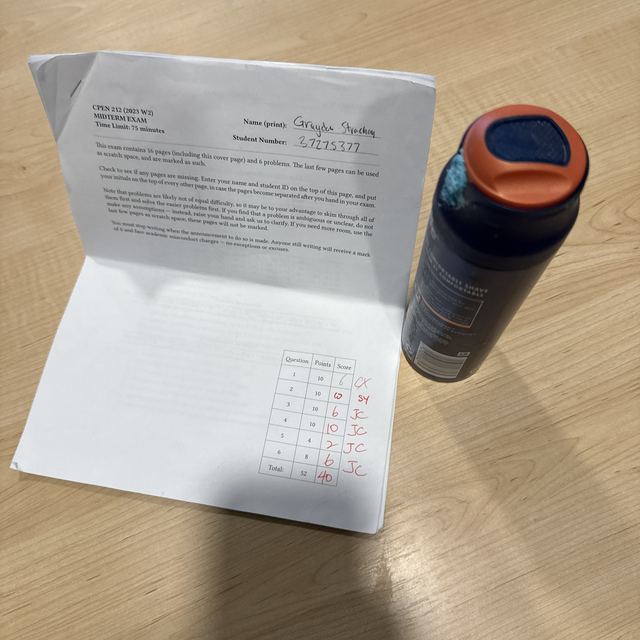 CPEN 212 (2023 W2)
MIDTERM EXAM
Time Limit: 75 minutes
Name (print): Graydon
Student Number: 37275377
This exam contains 16 pages (including this cover page) and 6 problems. The last few pages can be used
as scratch space, and are marked as such.
Check to see if any pages are missing. Enter your name and student ID on the top of this page, and put
your initials on the top of every other page, in case the pages become separated after you hand in your exam.
Note that problems are likely not of equal difficulty, so it may be to your advantage to skim through all of
them first and solve the easier problems first. If you find that a problem is ambiguous or unclear, do not
make any assumptions — instead, raise your hand and ask us to clarify. If you need more room, use the
last few pages as scratch paper; these pages will not be marked.
You must stop writing when the announcement to do so is made. Anyone still writing will receive a mark
of 0 and face academic misconduct charges — no exceptions or excuses.
Question Points Score
1 10 6 CX
2 10 10 SY
3 10 6 JC
4 10 10 JC
5 4 2 JC
6 8 6 JC
Total: 52 40
SHAVE